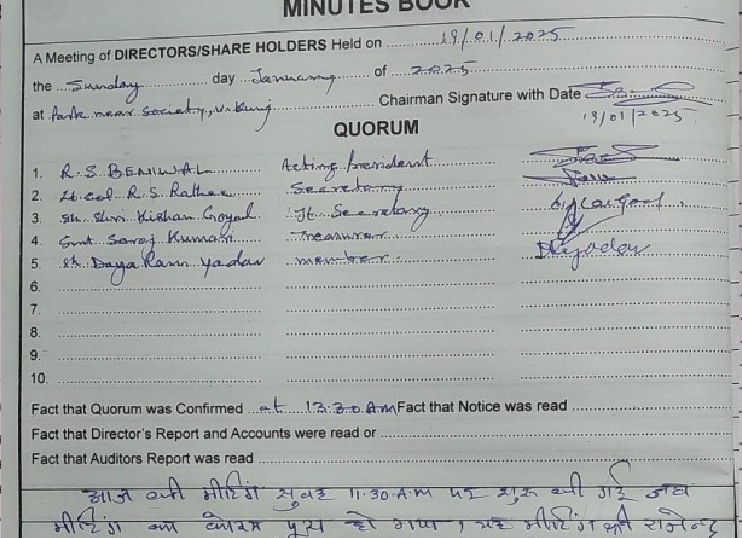 MINUTES BOOK
A Meeting of DIRECTORS/SHARE HOLDERS Held on 19/01/2025
the Sunday day January of 2025
at Park near Society, V. Kunj Chairman Signature with Date
19/01/2025
QUORUM
1. R.S. BENIWAL Acting President
2. Lt Col R.S. Rathee Secretary
3. Sh. Shri Kishan Goyal Jt. Secretary
4. Smt. Saroj Kumari Treasurer
5. Sh. Daya Ram Yadav member
6.
7.
8.
9.
10.
Fact that Quorum was Confirmed at A.M Fact that Notice was read
Fact that Director's Report and Accounts were read or
Fact that Auditors Report was read
आज की मीटिंग सुबह 11.30 A.M पर शुरू की गई जब
मीटिंग का कोरम पूरा हो गया । यह मीटिंग श्री राजेन्द्र